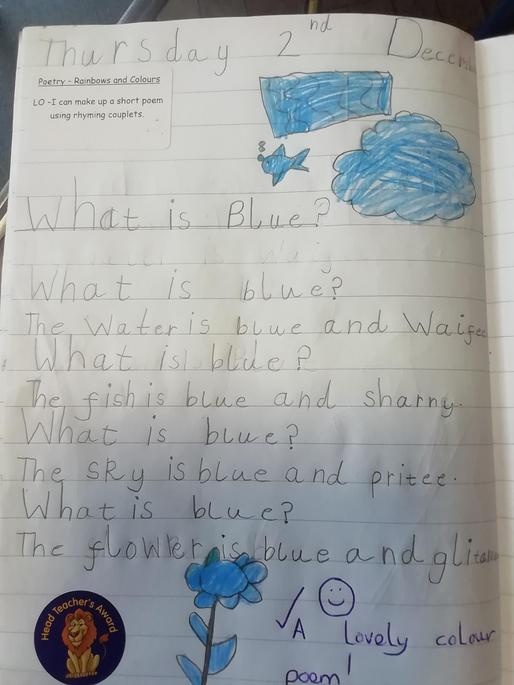 Thursday 2nd
Poetry - Rainbows and Colours
LO -I can make up a short poem
using rhyming couplets.
What is Blue?
What is blue?
The water is blue and
What is blue?
The fish is blue and sharny.
What is blue?
The sky is blue and pritee.
What is blue?
The flower is blue and
Head Teacher's Award
A lovely colour
poem!